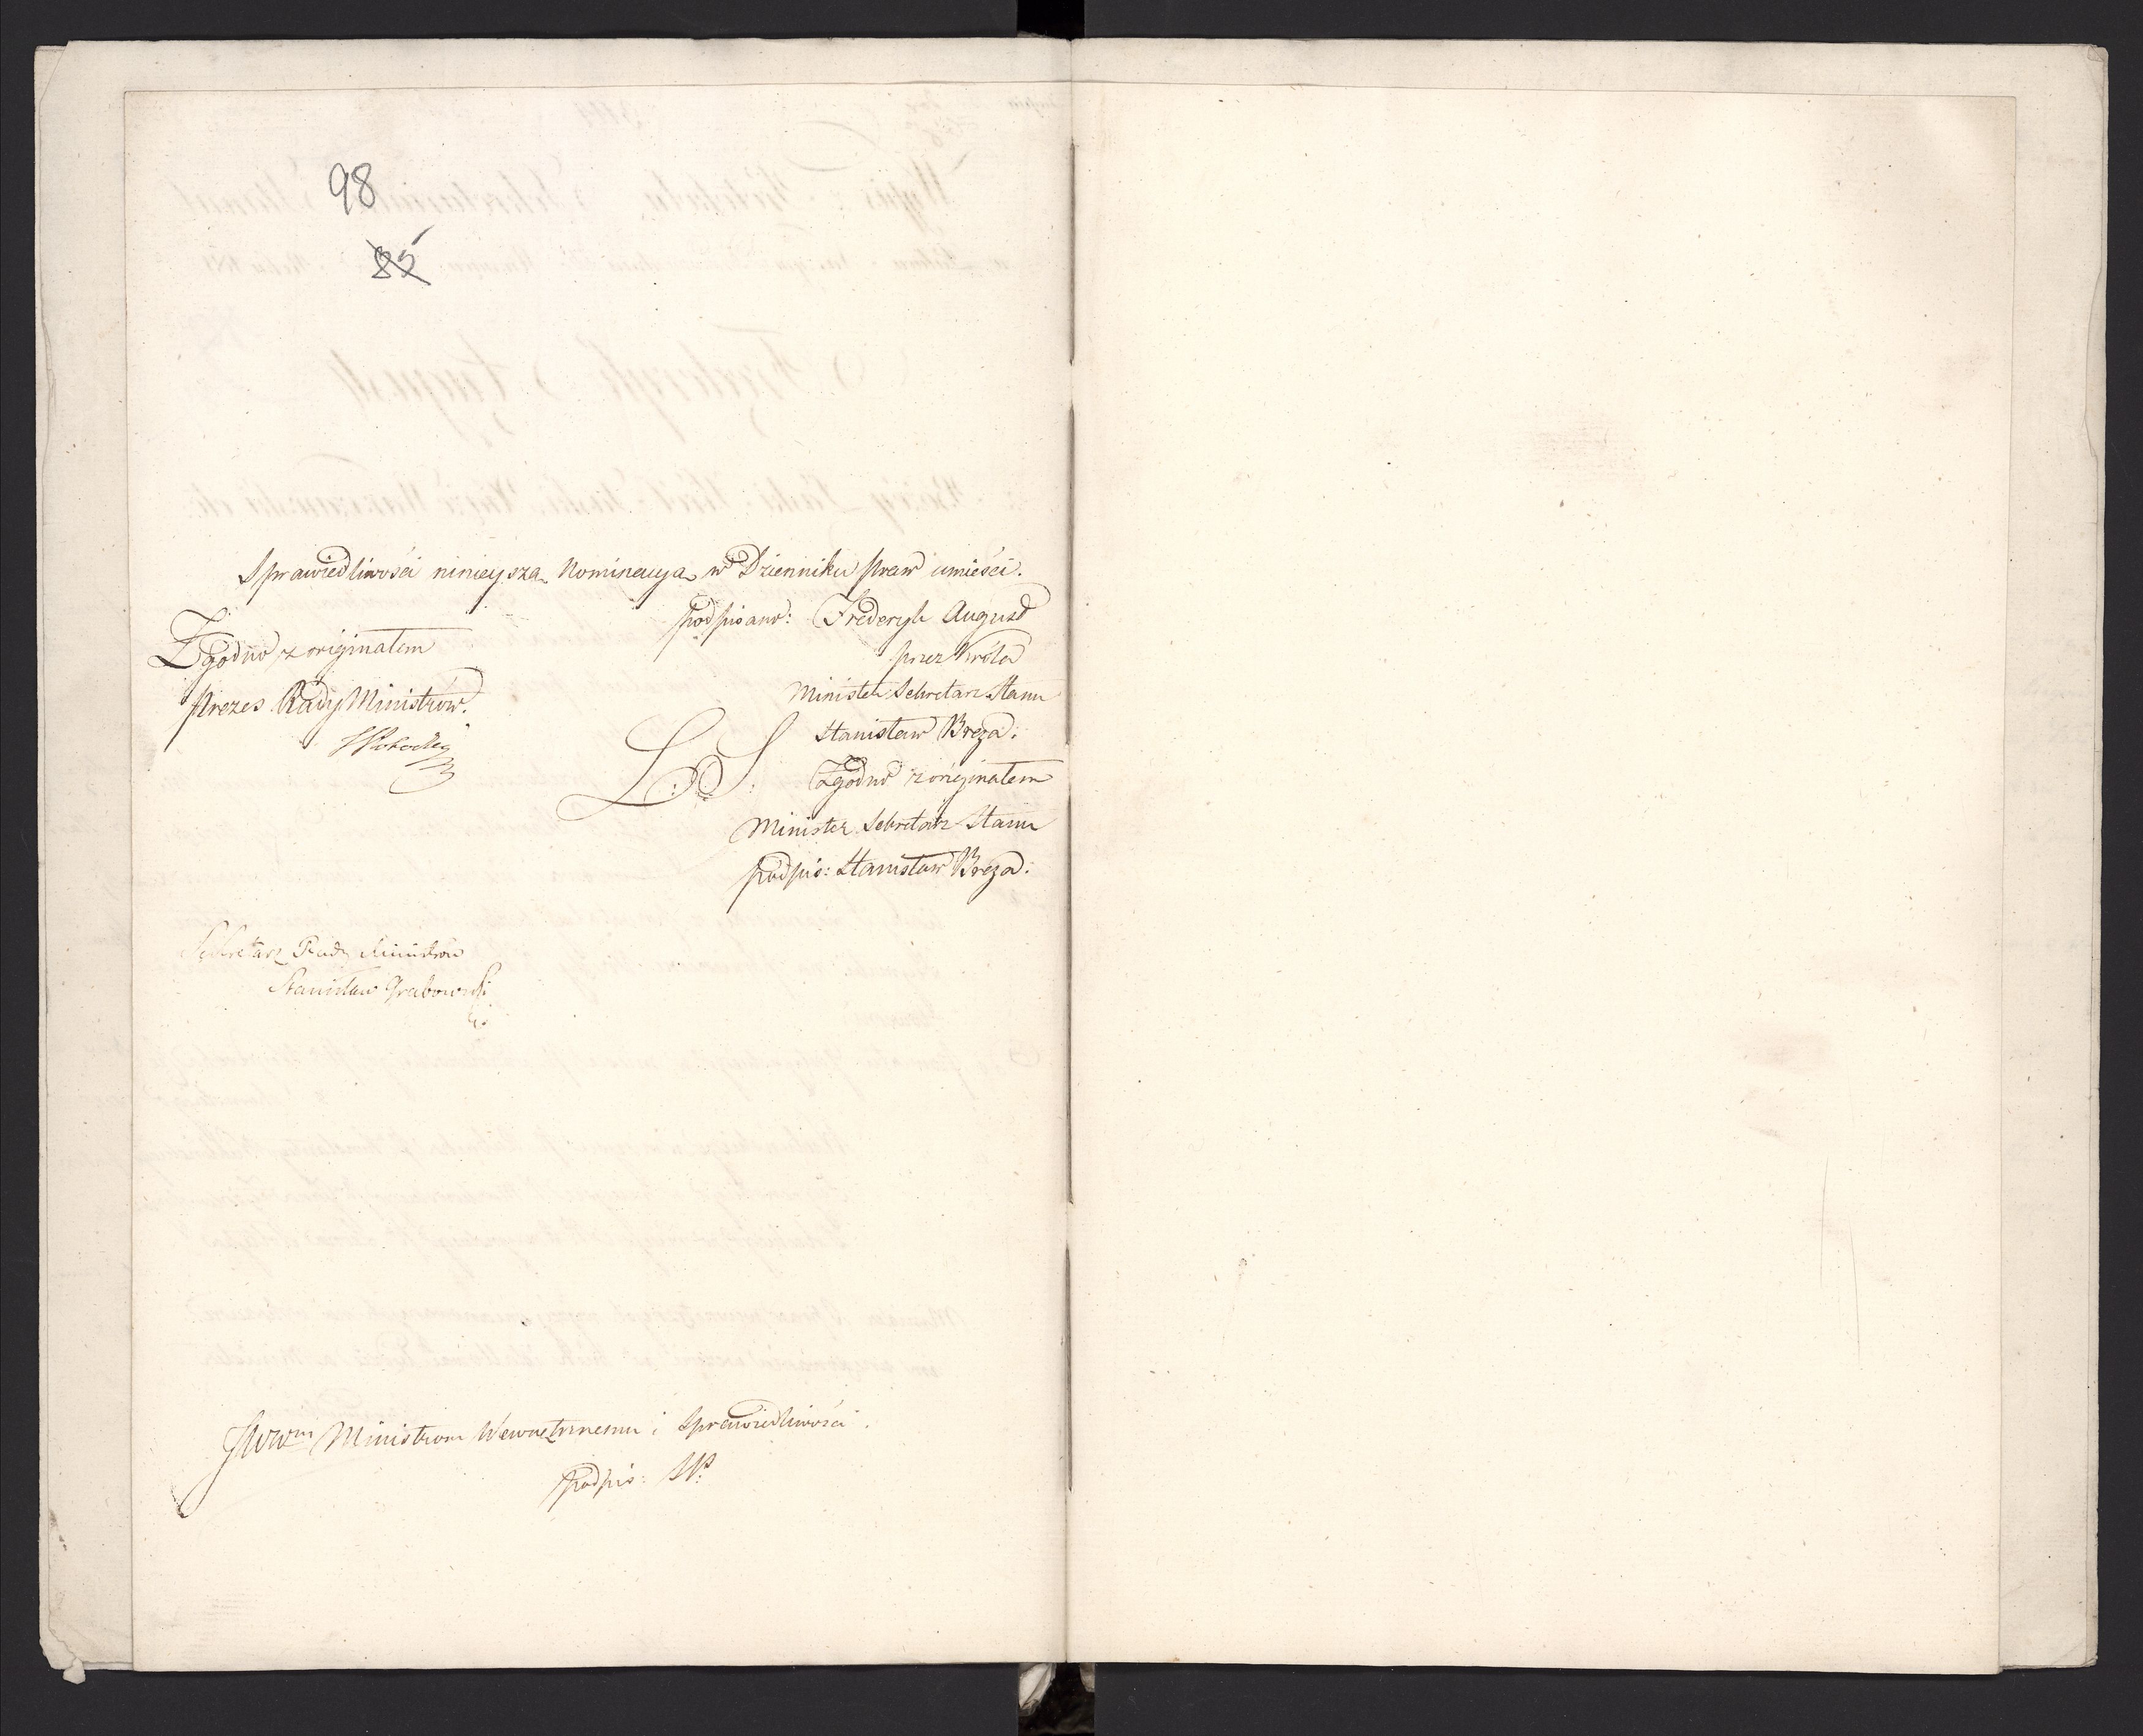 98
85
Sprawiedliwości ninieysza Nominacya w Dzienniku praw umieści.
podpisano: Frederyk August
przez Króla
Minister Sekretarz Stanu
Stanisław Breza.
L: S:
Zgodno z originałem
Minister Sekretarz Stanu
podpis: Stanisław Breza.
Zgodno z originałem
Prezes Rady Ministrów.
Sekretarz Rady Ministrów
Stanisław Grabowski
JWWm Ministrom Wewnętrznemu i Sprawiedliwości.
podpis: